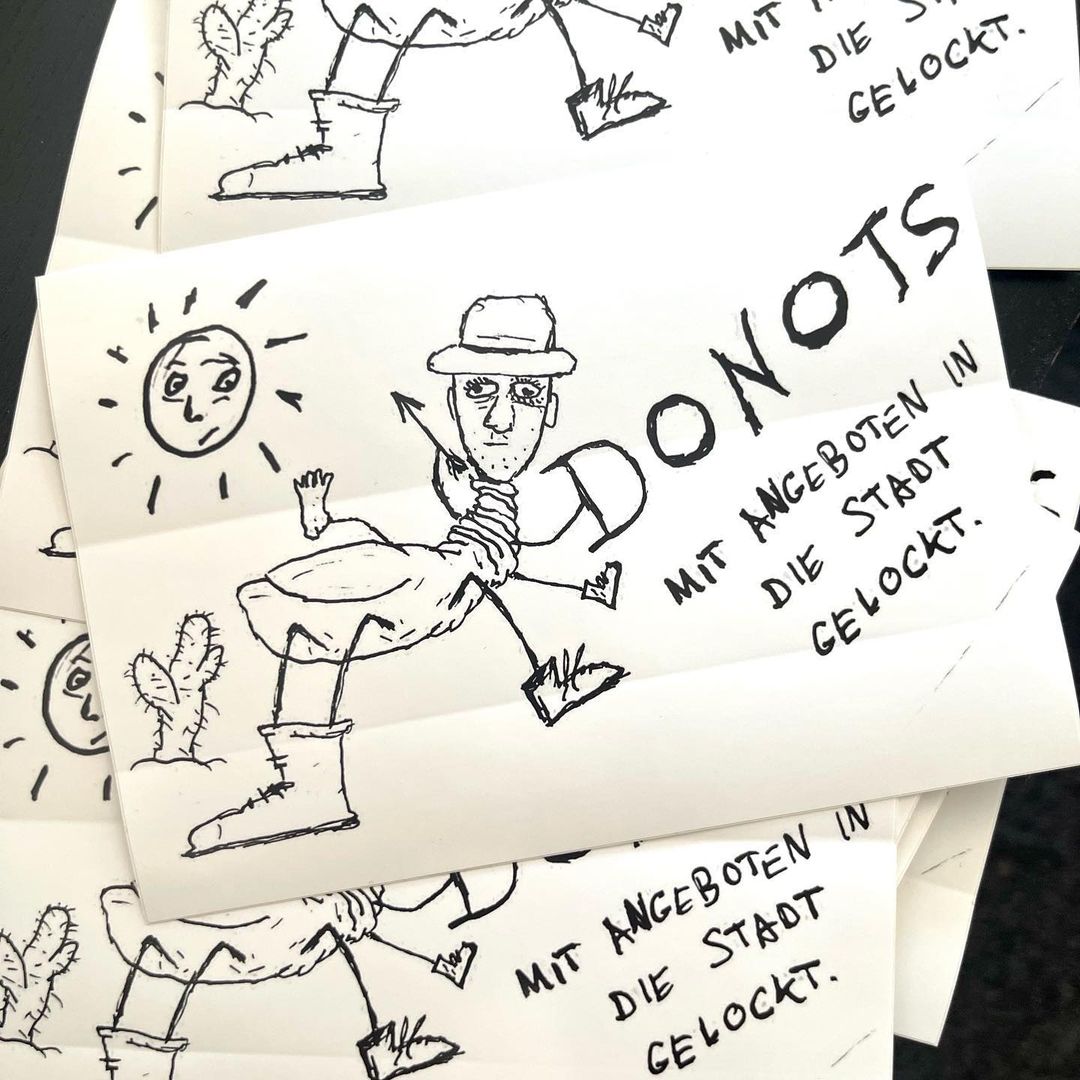 MIT
DIE
GELOCKT.
DONOTS
MIT ANGEBOTEN IN
DIE STADT
GELOCKT.
MIT ANGEBOTEN IN
DIE STADT
GELOCKT.